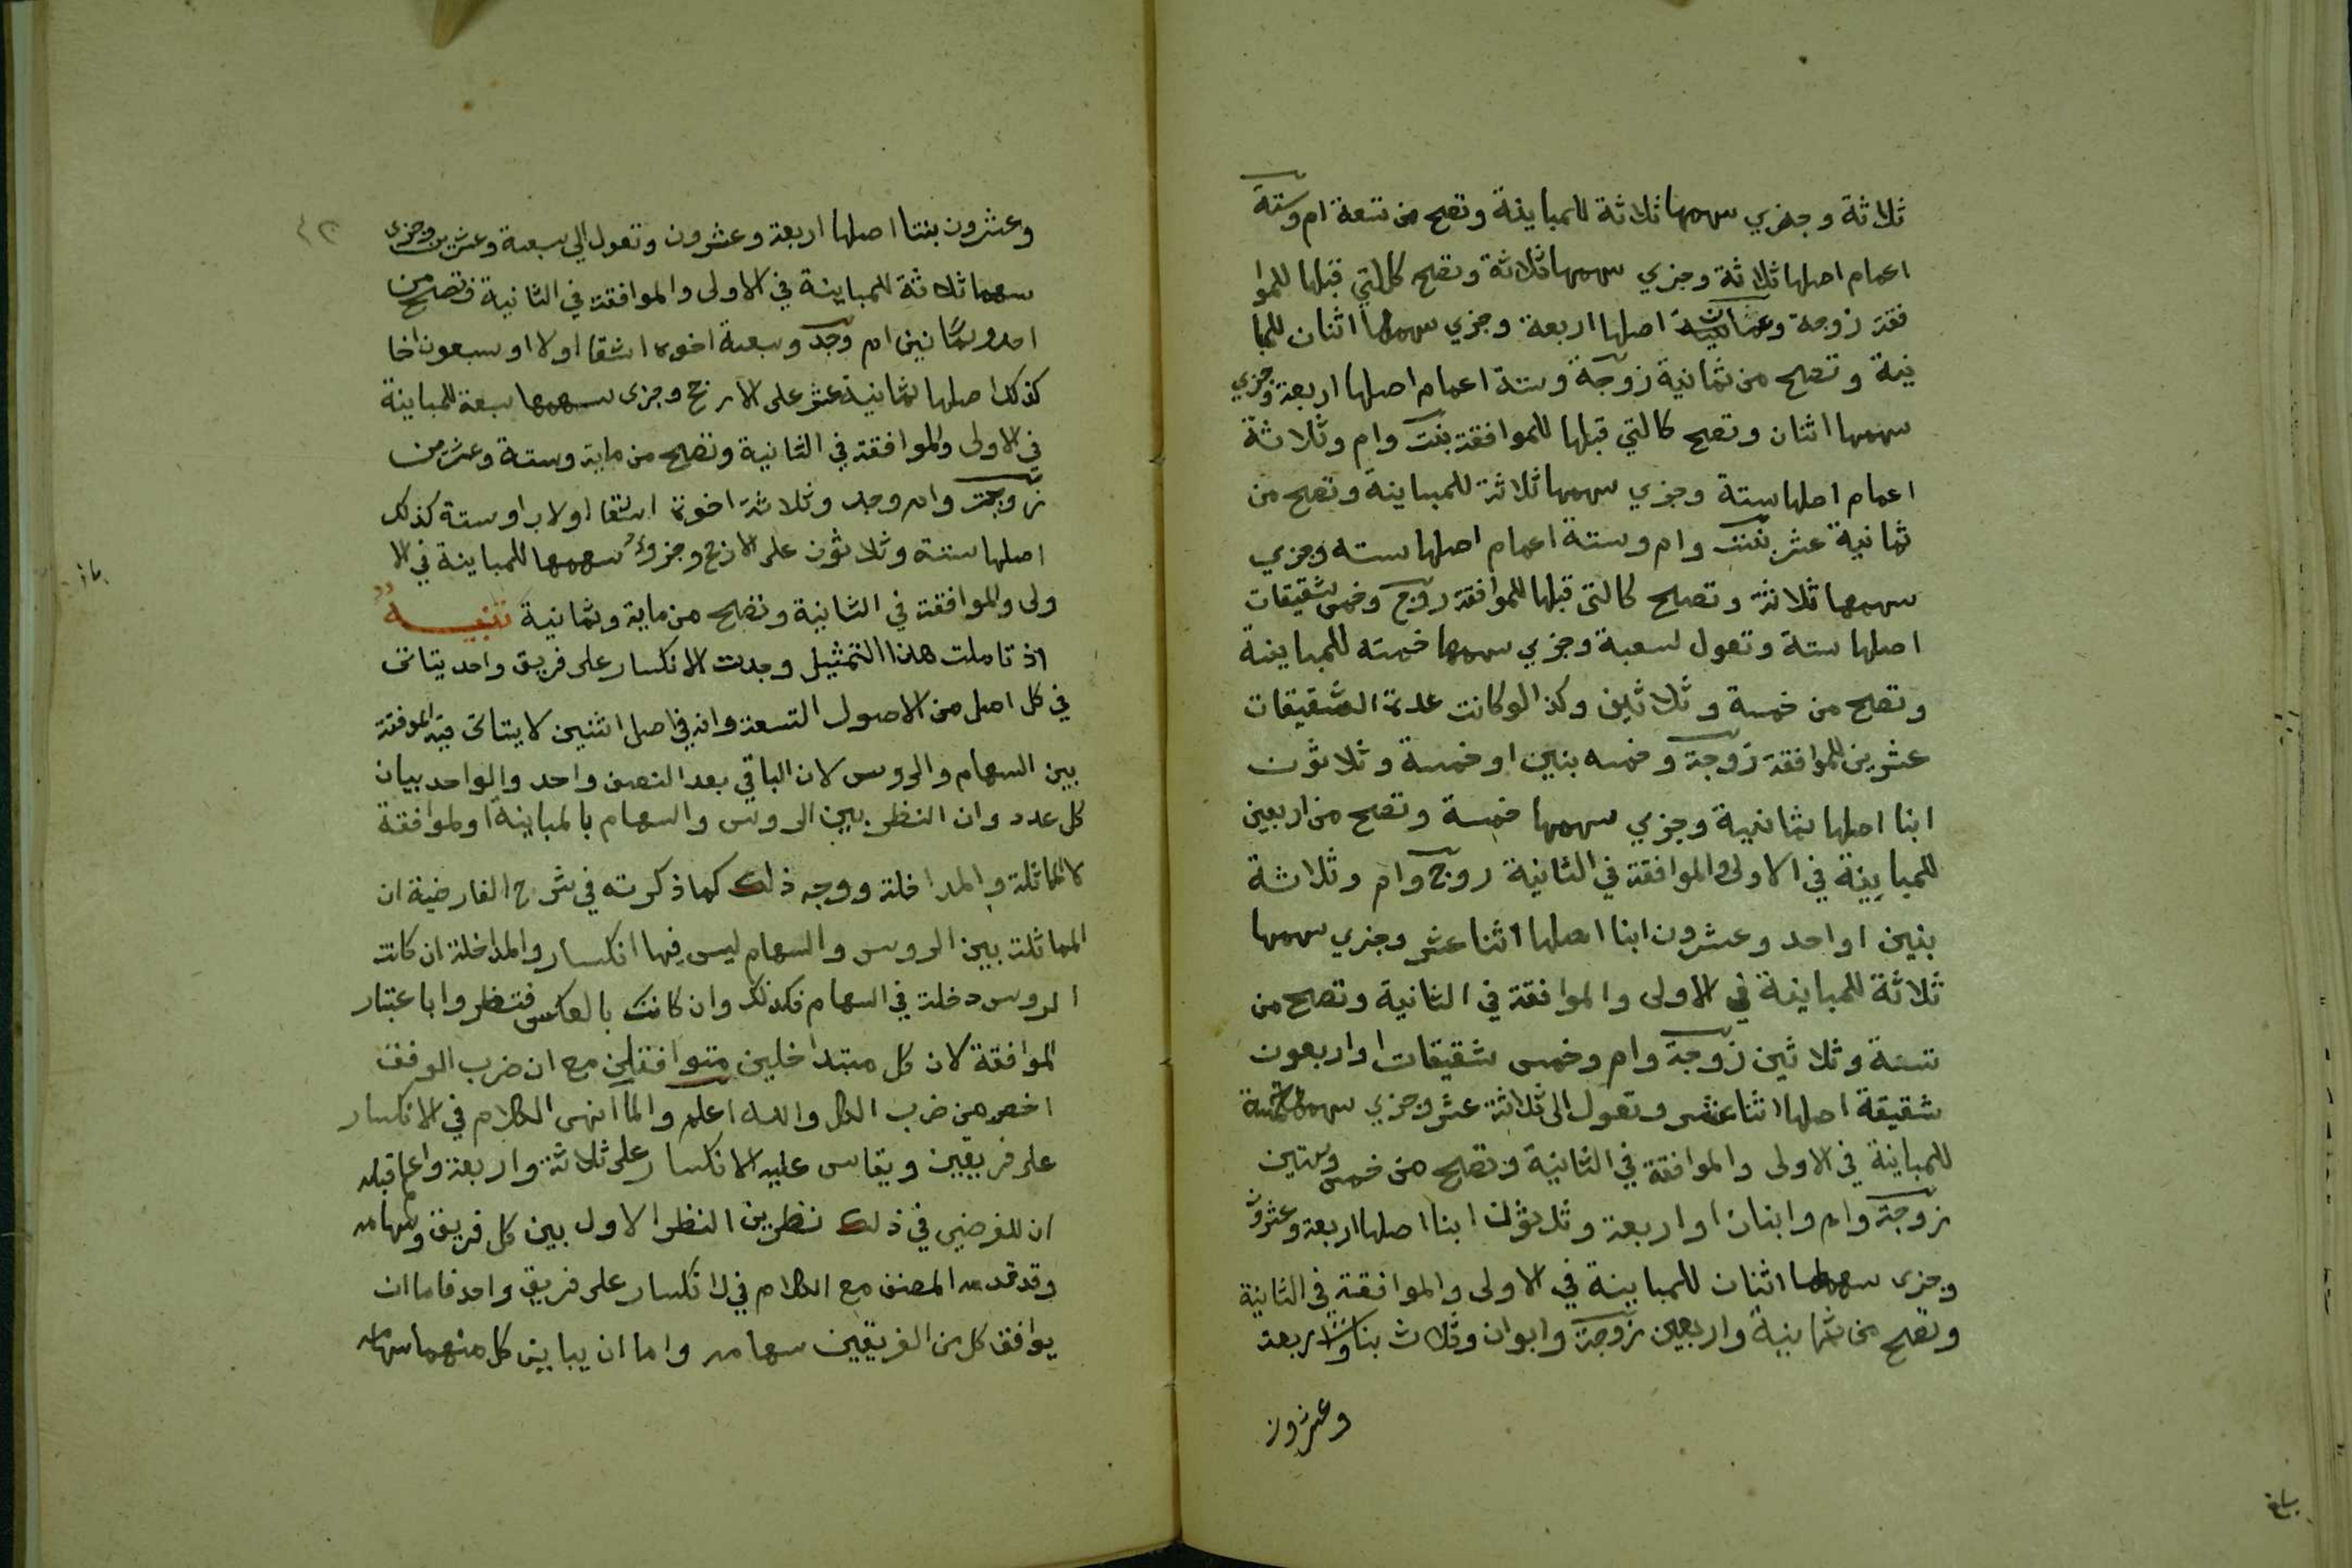 ثلاثة وجزي سهمها ثلاثة للمباينة وتصح من تسعة ام وستة
اعمام اصلها ثلاثة وجزي سهمها ثلاثة وتصح كالتي قبلها للموا
فقة زوجة وعمان اصلها اربعة وجزي سهمها اثنان للمبا
ينة وتصح من ثمانية زوجة وستة اعمام اصلها اربعة وجزي
سهمها اثنان وتصح كالتي قبلها للموافقة بنت وام وثلاثة
اعمام اصلها ستة وجزي سهمها ثلاثة للمباينة وتصح من
ثمانية عشر بنت وام وستة اعمام اصلها سته وجزي
سهمها ثلاثة وتصح كالتي قبلها للموافقة زوج وخمس شقيقات
اصلها ستة وتعول لسعبة وجزي سهمها خمسه للمباينة
وتصح من خمسة وثلاثين وكذا لو كانت عدة الشقيقات
عشرين للموافقة زوجة وخمسه بنين او خمسة وثلاثون
ابنا اصلها ثمانية وجزي سهمها خمسة وتصح من اربعين
للمباينة في الاولى والموافقة في الثانية زوج وام وثلاثة
بنين او احد وعشرون ابنا اصلها اثنا عشر وجزي سهمها
ثلاثة للمباينة في الاولى والموافقة في الثانية وتصح من
ستة وثلاثين زوجة وام وخمس شقيقات او اربعون
شقيقة اصلها اثنا عشر وتعول الى ثلاثة عشر وجزي سهمها خمسة
للمباينة في الاولى والموافقة في الثانية وتصح من خمس وستين
زوجة وام وابنان او اربعة وثلاثون ابنا اصلها اربعة وعشرون
وجزى سهمها اثنان للمباينة في الاولى والموافقة في الثانية
وتصح من ثمانية واربعين زوجة وابوان وثلاث بنات او اربعة
وعشرون
وعشرون بنتا اصلها اربعة وعشرون وتعول الي سبعة وعشرين وجزى
سهمها ثلاثة للمباينة في الاولى والموافقة في الثانية وتصح من
احد وثمانين ام وجد وسبعة اخوة اشقا او لاب او سبعون اخا
كذلك اصلها ثمانية عشر على الارجح وجزى سهمها سبعة للمباينة
في الاولى والموافقة في الثانية وتصح من ماية وستة وعشرين
زوجة وام وجد وثلاثة اخوة اشقا او لاب او ستة كذلك
اصلها ستة وثلاثون على الارجح وجزؤ سهمها للمباينة في الا
ولى والموافقة في الثانية وتصح من ماية وثمانية تنبيه
اذ تاملت هذا التمثيل وجدت الانكسار على فريق واحد يتاتى
في كل اصل من الاصول التسعة وانه في اصل اثنين لا يتاتى فيه الموافقة
بين السهام والروس لان الباقي بعد النصف واحد والواحد يباين
كل عدد وان النظر بين الروس والسهام بالمباينة او الموافقة
لا المماثلة والمداخلة ووجه ذلك كما ذكرته في شرح الفارضية ان
المماثلة بين الروس والسهام ليس فيها انكسار والمداخلة ان كانت
الروس دخلة في السهام فكذلك وان كانت بالعكس فتنظروا باعتبار
الموافقة لان كل متداخلين متوافقين مع ان ضرب الوفق
اخصر من ضرب الكل والله اعلم ولما انهى الكلام في الانكسار
على فريقين ويقاس عليه الانكسار على ثلاثة واربعة واعلم قبله
ان للفرضي في ذلك نظرين النظر الاول بين كل فريق وسهامه
وقد قدمه المصنف مع الكلام في الانكسار على فريق واحد فاما ان
يوافق كل من الفريقين سهامه واما ان يباين كل منهما سهامه